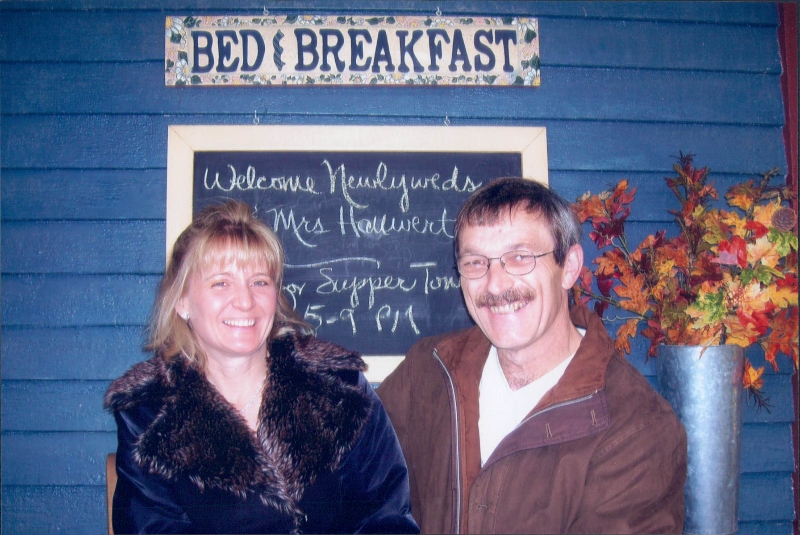 BED & BREAKFAST
Welcome Newlyweds
& Mrs Hauwert
for Supper Ton
5-9 PM